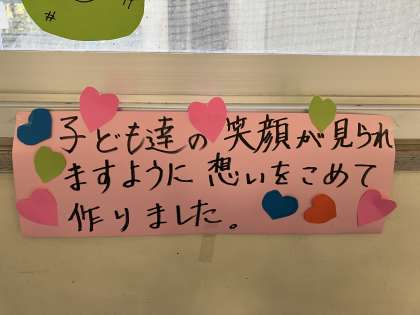 子ども達の笑顔が見られ
ますように想いをこめて
作りました。